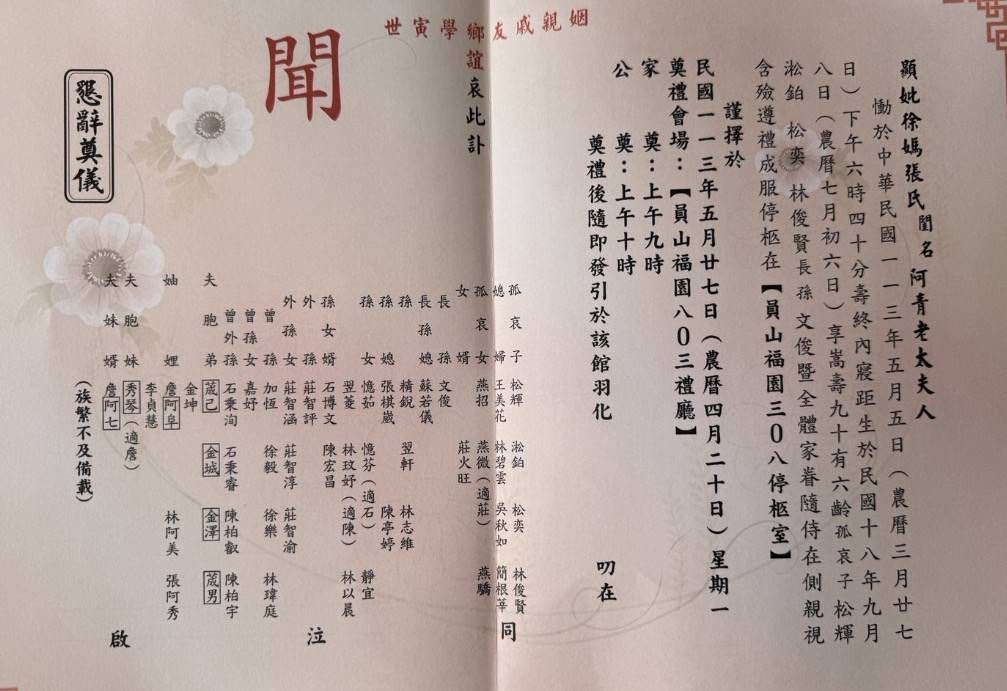 顯妣徐媽張氏閨名阿青老太夫人
慟於中華民國一一三年五月五日（農曆三月廿七
日）下午六時四十分壽終內寢距生於民國十八年九月
八日（農曆七月初六日）享嵩壽九十有六齡孤哀子松輝
淞鉑 松奕 林俊賢長孫文俊暨全體家眷隨侍在側親視
含殮遵禮成服停柩在【員山福園三0八停柩室】
謹擇於
民國一一三年五月廿七日（農曆四月二十日）星期一
奠禮會場：【員山福園八0三禮廳】
家 奠：上午九時
公 奠：上午十時
奠禮後隨即發引於該館羽化
叨在
姻親戚友鄉學寅世
誼哀此訃
聞
孤哀子 松輝 淞鉑 松奕 林俊賢 同
媳婦 王美花 林碧雲 吳秋如 簡根華
孤哀女 燕招 燕微（適莊） 燕驕
女婿 莊火旺
長孫 文俊
長孫媳 蘇若儀
孫 精銳 翌軒 林志維
孫媳 張棋崴 陳亭婷
孫女 憶茹 憶芬（適石） 靜宜
翌菱 林玟妤（適陳） 林以晨
孫女婿 石博文 陳宏昌
外孫 莊智評 泣
外孫女 莊智涵 莊智淳 莊智渝
曾孫 加恆 徐毅 徐樂 林瑋庭
曾孫女 嘉妤
曾外孫 石秉洵 石秉睿 陳柏叡 陳柏宇
夫胞弟 葴己 金城 金澤 葴男
金坤
妯娌 詹阿阜 林阿美 張阿秀
李貞慧
夫胞妹 秀琴（適詹）
夫妹婿 詹阿七 啟
（族繁不及備載）
懇辭奠儀